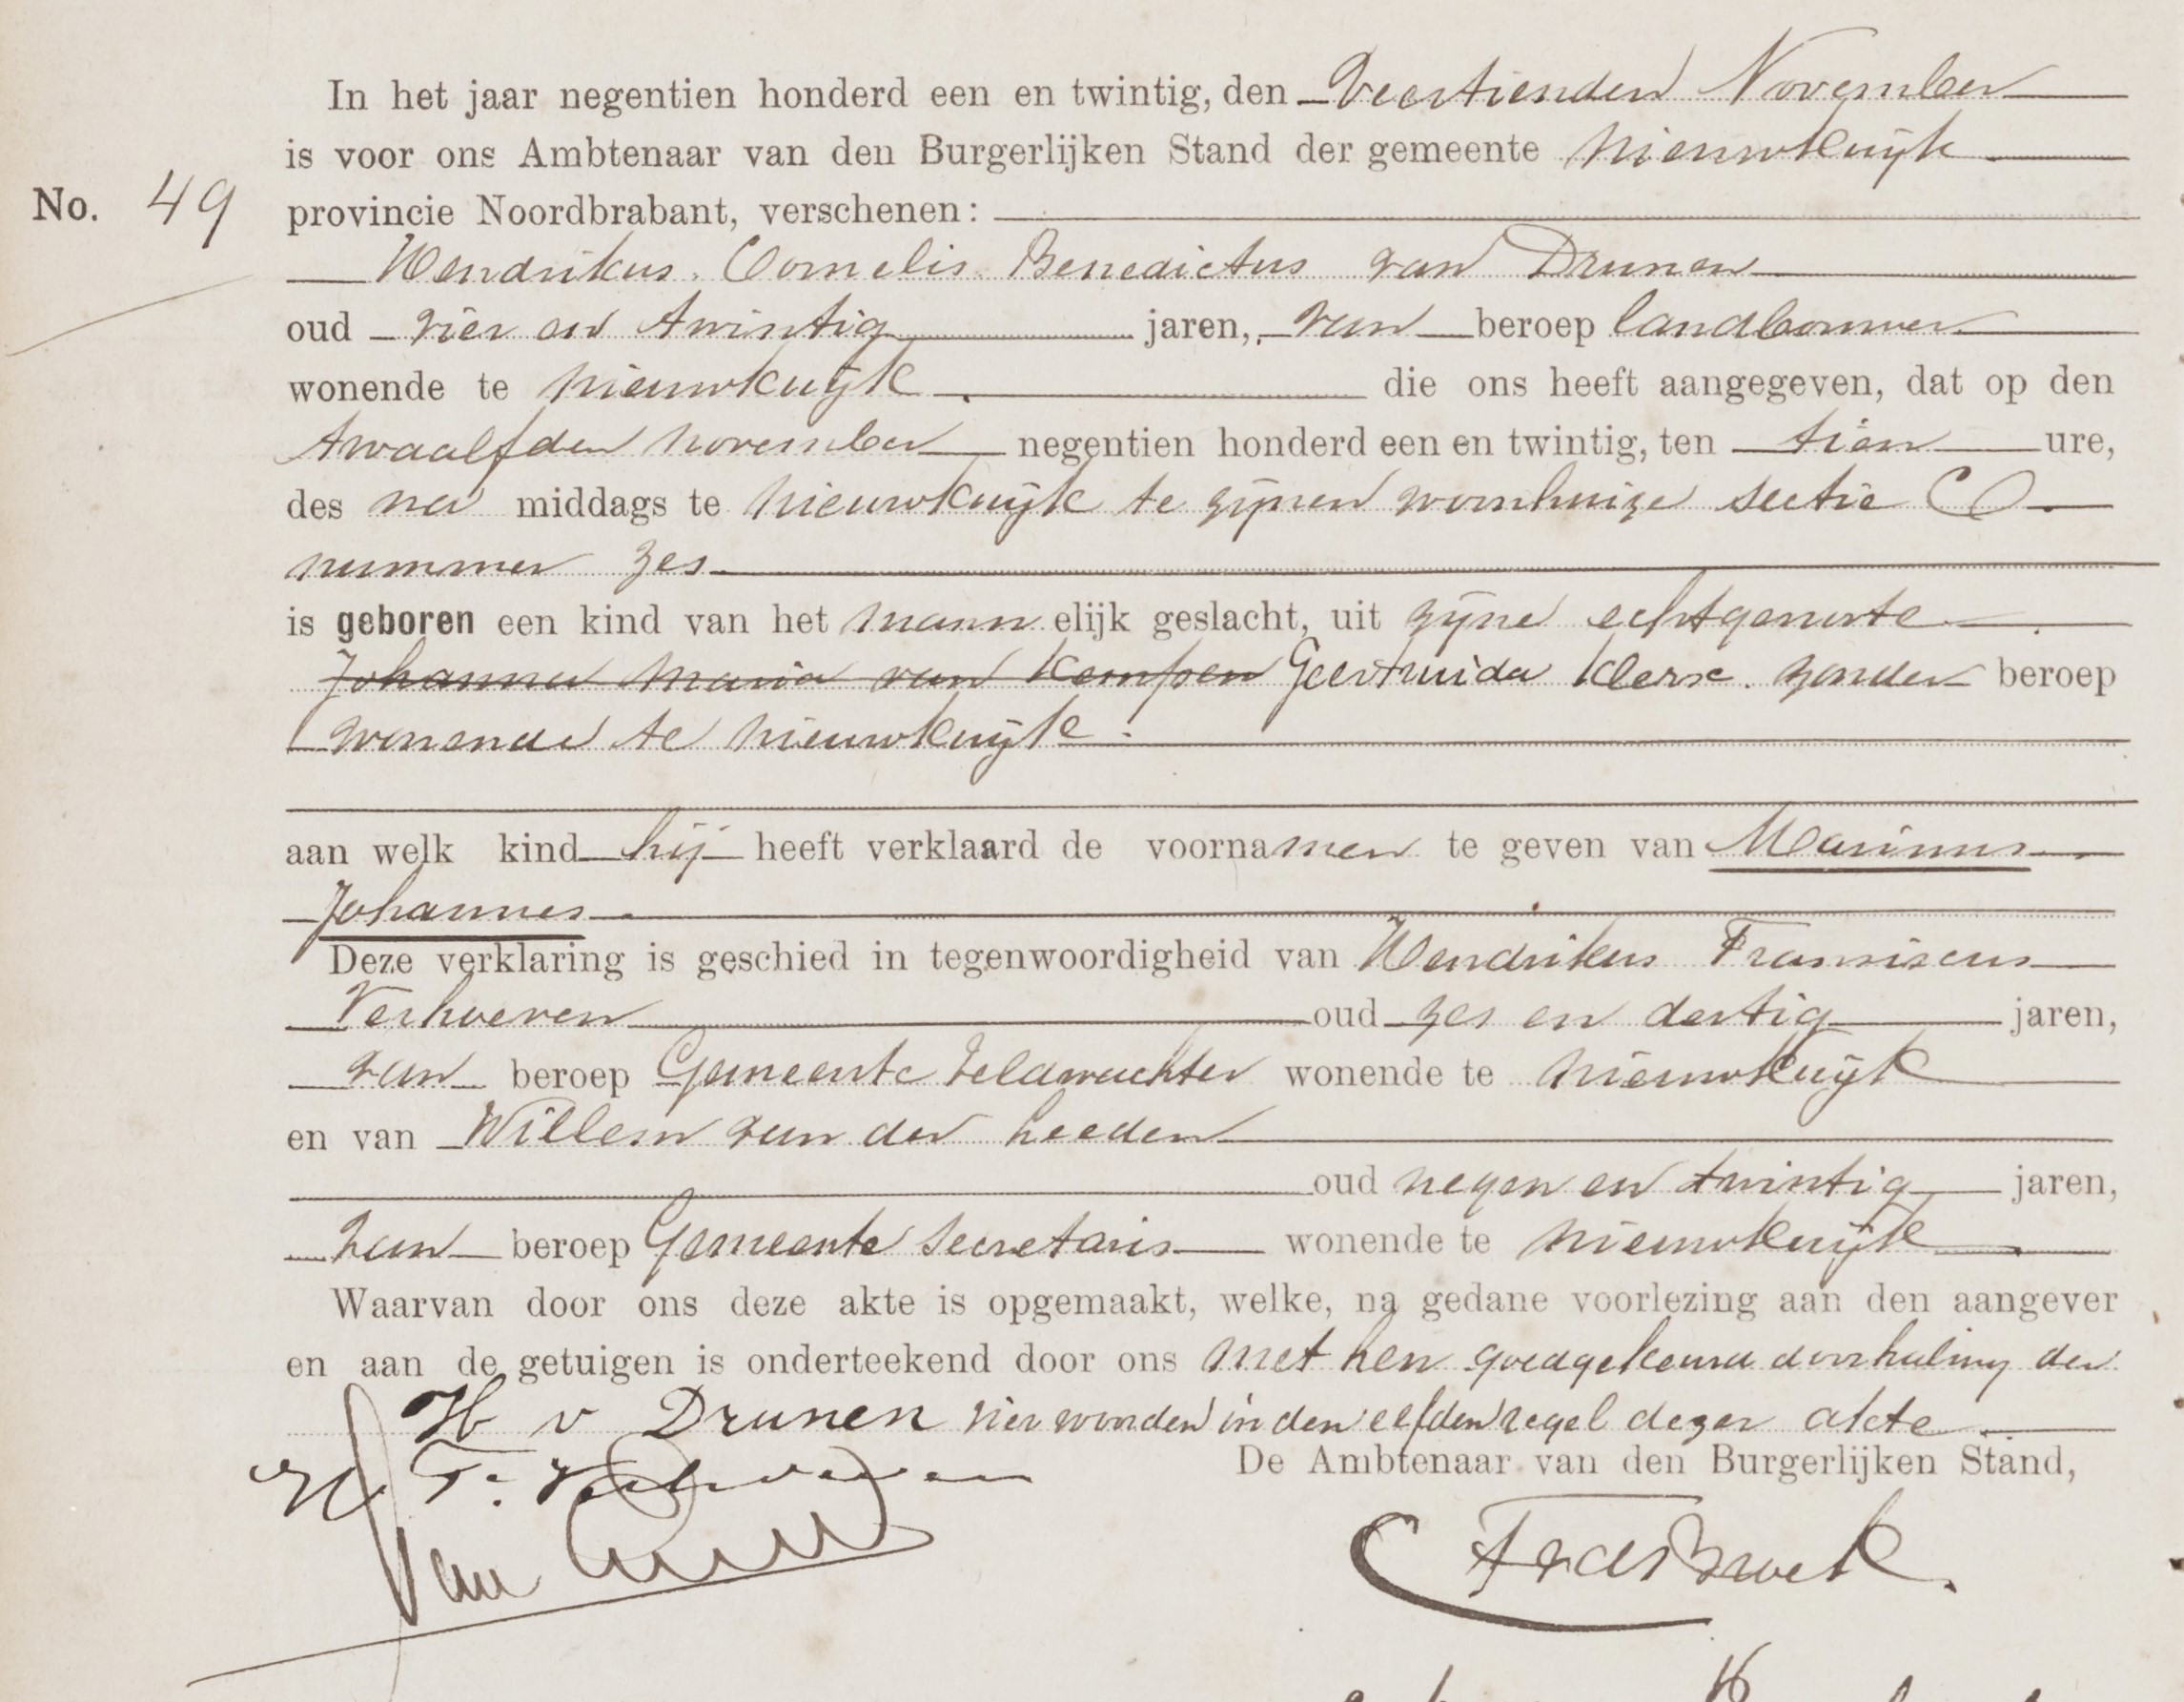 In het jaar negentien honderd een en twintig, den Veertienden November
is voor ons Ambtenaar van den Burgerlijken Stand der gemeente Nieuwkuijk
No. 49
provincie Noordbrabant, verschenen:
Hendrikus Cornelis Benedictus van Drunen
oud vier en twintig jaren, van beroep landbouwer
wonende te Nieuwkuijk die ons heeft aangegeven, dat op den
twaalfden november negentien honderd een en twintig, ten tien ure,
des na middags te Nieuwkuijk te zijnen woonhuize sectie C
nummer zes
is geboren een kind van het mannelijk geslacht, uit zijne echtgenoote
Johanna Maria van Kempen Geertruida Klerx zonder beroep
wonende te Nieuwkuijk.
aan welk kind hij heeft verklaard de voornamen te geven van Marinus
Johannes
Deze verklaring is geschied in tegenwoordigheid van Hendrikus Fransiscus
Verhoeven oud zes en dertig jaren,
van beroep Gemeente Veldwachter wonende te Nieuwkuijk
en van Willem van der heeden
oud negen en twintig jaren,
van beroep Gemeente Secretaris wonende te Nieuwkuijk
Waarvan door ons deze akte is opgemaakt, welke, na gedane voorlezing aan den aangever
en aan de getuigen is onderteekend door ons met hen goedgekeurd doorhaling der
H v Drunen vier woorden in den elfden regel dezer akte
De Ambtenaar van den Burgerlijken Stand,
H F. Verhoeven
van